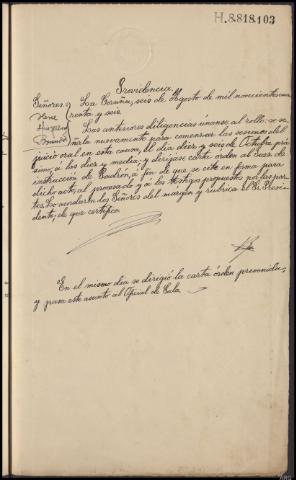 H.8.818.103
Providencia
Señores. La Coruña, seis de Agosto de mil novecientos cua
renta y seis.
Las anteriores diligencias únanse al rollo; y se se
ñala nuevamente para comenzar las sesiones del
juicio oral en esta causa, el día diez y seis de Octubre pró
ximo, a las diez y media, y diríjase carta orden al Juez de
instrucción de Padrón, a fin de que se cite en forma para
dicho acto al procesado y a los testigos propuestos por las par
tes. Lo acordaron los Señores del margen y rubrica el Sr. Presi
dente, de que certifico.
En el mismo día se dirigió la carta orden prevenida,
y pasa este asunto al Oficial de Sala.